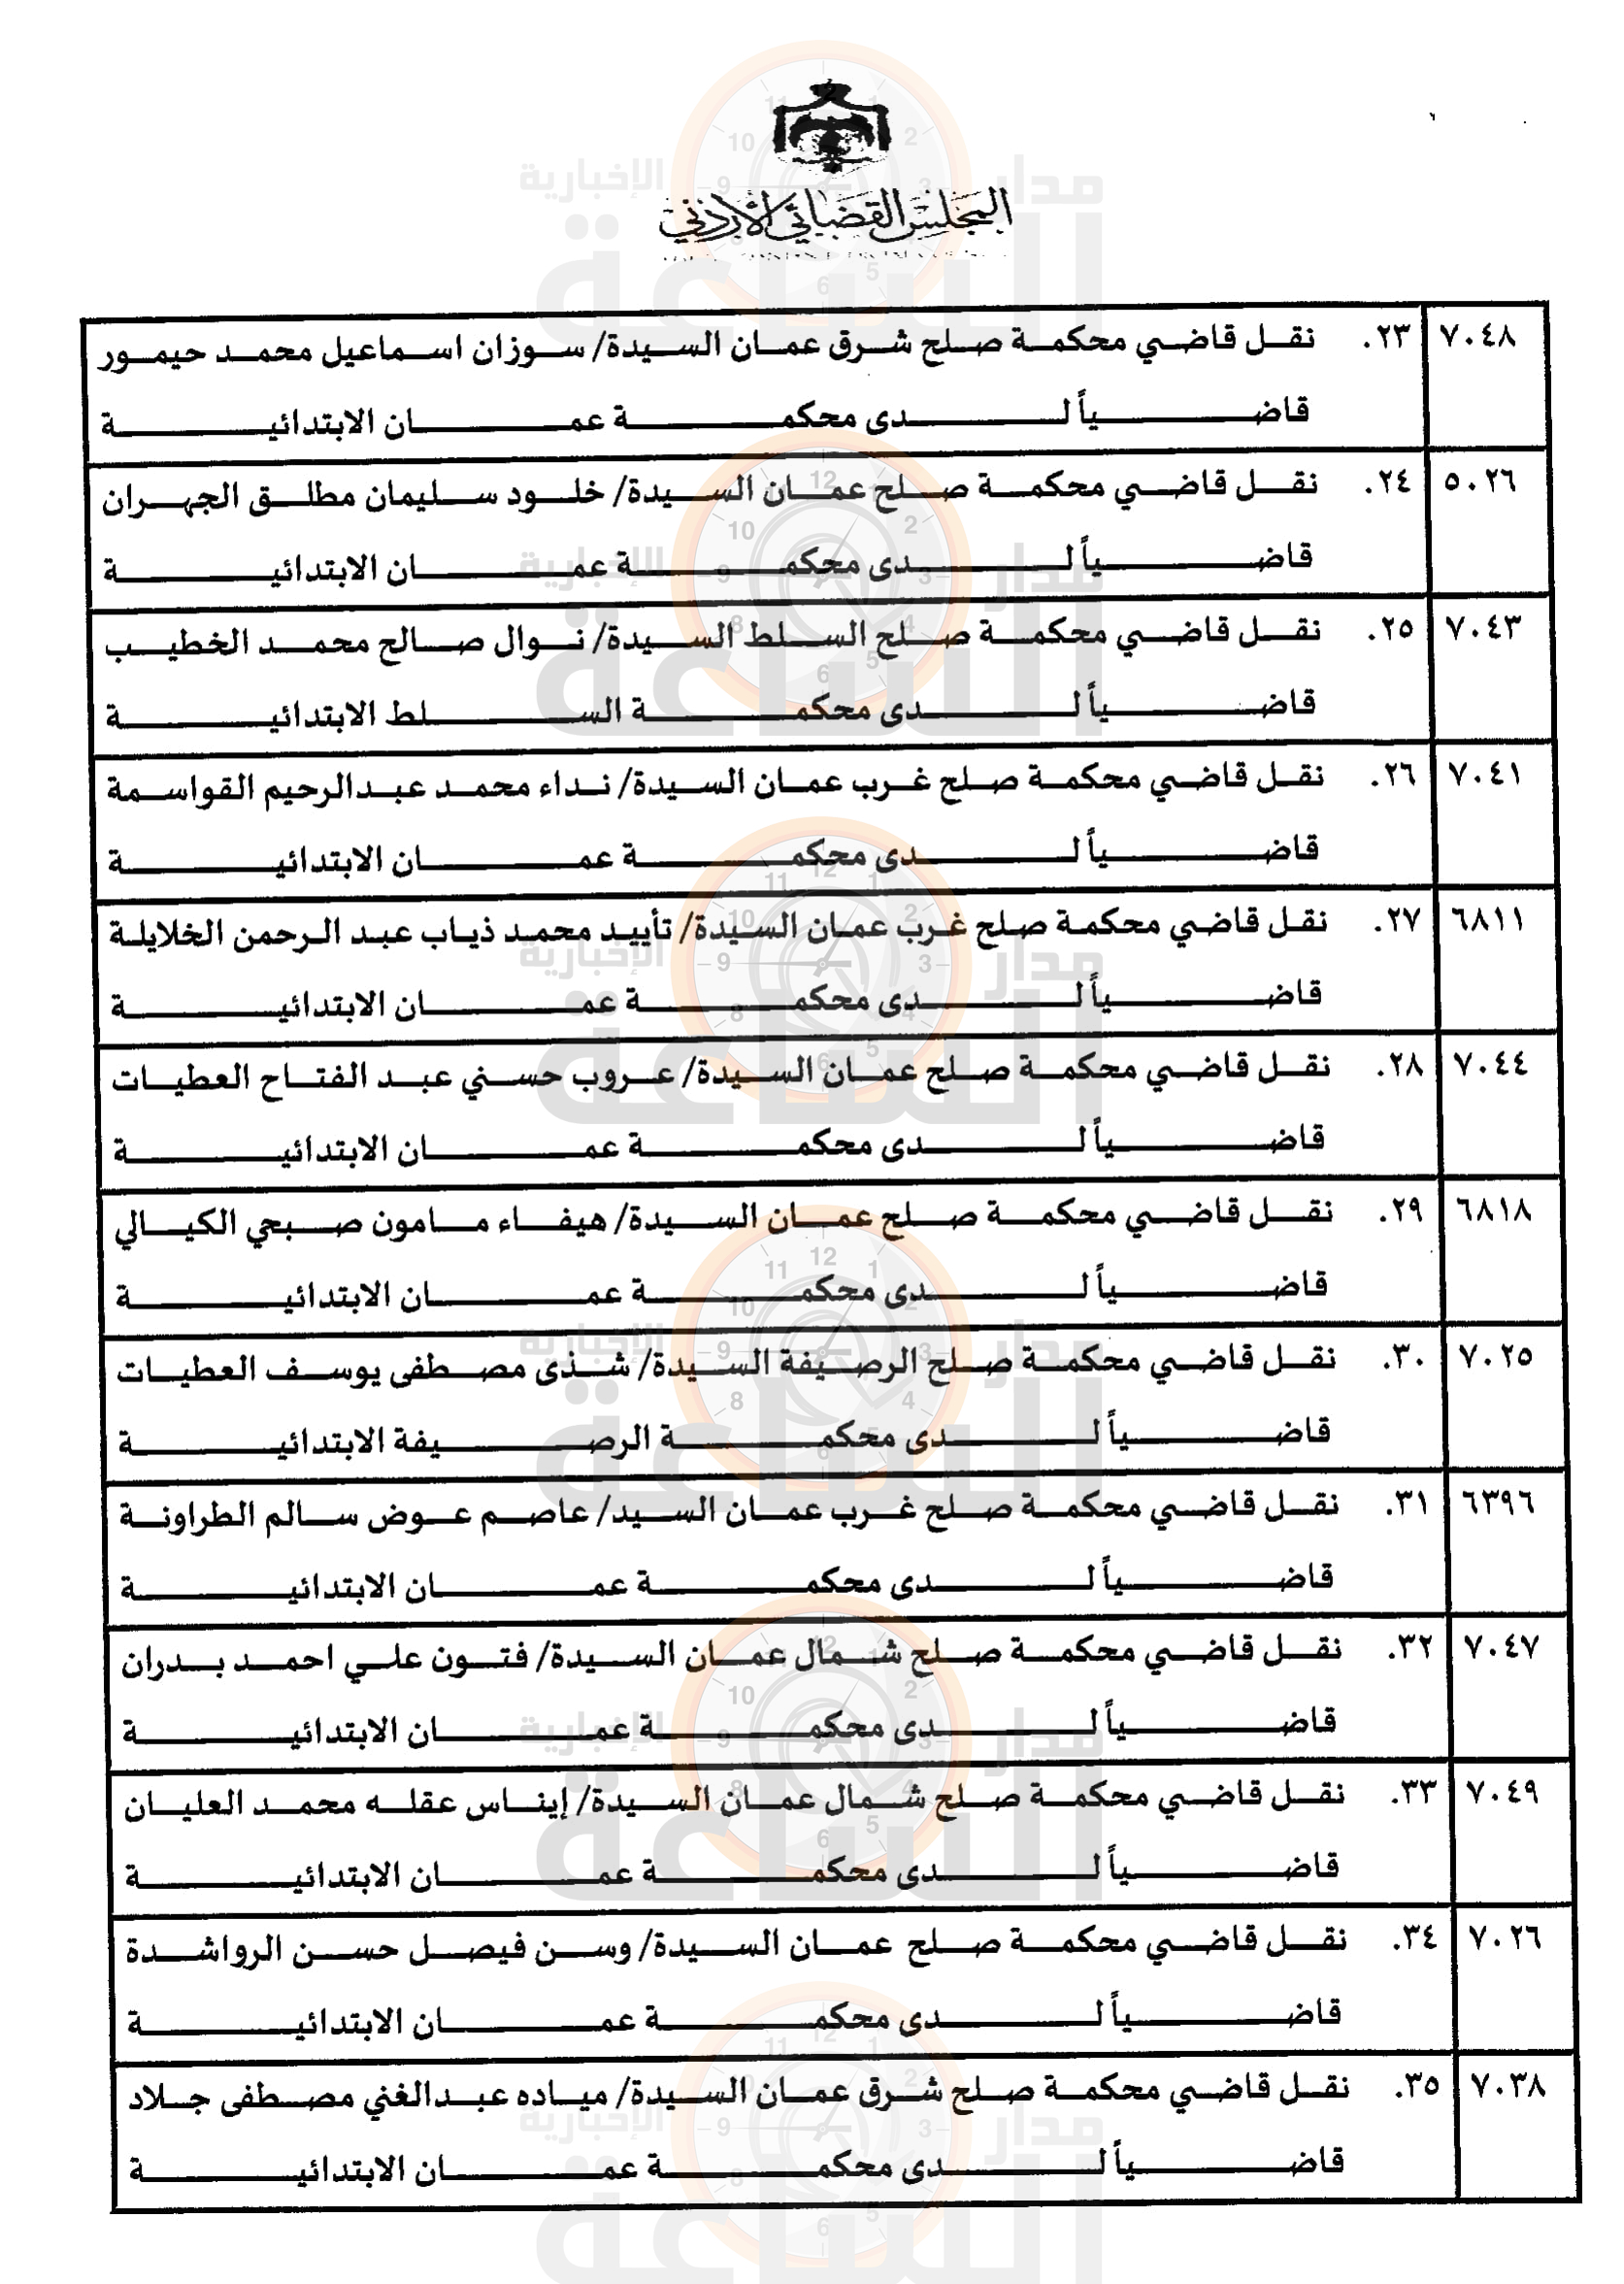 المجلس القضائي الأردني
٧٠٤٨ ٢٣. نقل قاضي محكمة صلح شرق عمان السيدة/ سوزان اسماعيل محمد حيمور
قاضياً لدى محكمة عمان الابتدائية
٥٠٢٦ ٢٤. نقل قاضي محكمة صلح عمان السيدة/ خلود سليمان مطلق الجهران
قاضياً لدى محكمة عمان الابتدائية
٧٠٤٣ ٢٥. نقل قاضي محكمة صلح السلط السيدة/ نوال صالح محمد الخطيب
قاضياً لدى محكمة السلط الابتدائية
٧٠٤١ ٢٦. نقل قاضي محكمة صلح غرب عمان السيدة/ نداء محمد عبدالرحيم القواسمة
قاضياً لدى محكمة عمان الابتدائية
٦٨١١ ٢٧. نقل قاضي محكمة صلح غرب عمان السيدة/ تأييد محمد ذياب عبد الرحمن الخلايلة
قاضياً لدى محكمة عمان الابتدائية
٧٠٤٤ ٢٨. نقل قاضي محكمة صلح عمان السيدة/ عروب حسني عبد الفتاح العطيات
قاضياً لدى محكمة عمان الابتدائية
٦٨١٨ ٢٩. نقل قاضي محكمة صلح عمان السيدة/ هيفاء مامون صبحي الكيالي
قاضياً لدى محكمة عمان الابتدائية
٧٠٢٥ ٣٠. نقل قاضي محكمة صلح الرصيفة السيدة/ شذى مصطفى يوسف العطيات
قاضياً لدى محكمة الرصيفة الابتدائية
٦٣٩٦ ٣١. نقل قاضي محكمة صلح غرب عمان السيد/ عاصم عوض سالم الطراونة
قاضياً لدى محكمة عمان الابتدائية
٧٠٤٧ ٣٢. نقل قاضي محكمة صلح شمال عمان السيدة/ فتون علي احمد بدران
قاضياً لدى محكمة عمان الابتدائية
٧٠٤٩ ٣٣. نقل قاضي محكمة صلح شمال عمان السيدة/ إيناس عقله محمد العليان
قاضياً لدى محكمة عمان الابتدائية
٧٠٢٦ ٣٤. نقل قاضي محكمة صلح عمان السيدة/ وسن فيصل حسن الرواشدة
قاضياً لدى محكمة عمان الابتدائية
٧٠٣٨ ٣٥. نقل قاضي محكمة صلح شرق عمان السيدة/ مياده عبدالغني مصطفى جلاد
قاضياً لدى محكمة عمان الابتدائية
مدار الساعة الإخبارية